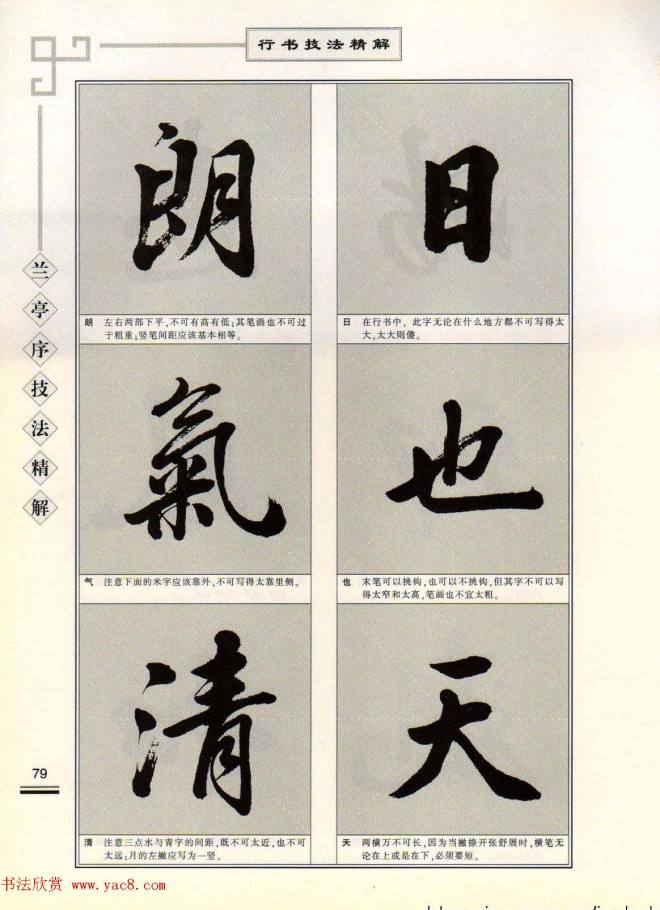 行书技法精解
兰亭序技法精解
日
日 在行书中，此字无论在什么地方都不可写得太
大,太大则傻。
也
也 末笔可以挑钩,也可以不挑钩,但其字不可以写
得太窄和太高,笔画也不宜太粗。
天
天 两横万不可长,因为当撇捺开张舒展时,横笔无
论在上或是在下,必须要短。
朗
朗 左右两部下平,不可有高有低;其笔画也不可过
于粗重;竖笔间距应该基本相等。
氣
气 注意下面的米字应该靠外,不可写得太靠里侧。
清
清 注意三点水与青字的间距,既不可太近,也不可
太远;月的左撇应写为一竖。
79
书法欣赏 www.yac8.com